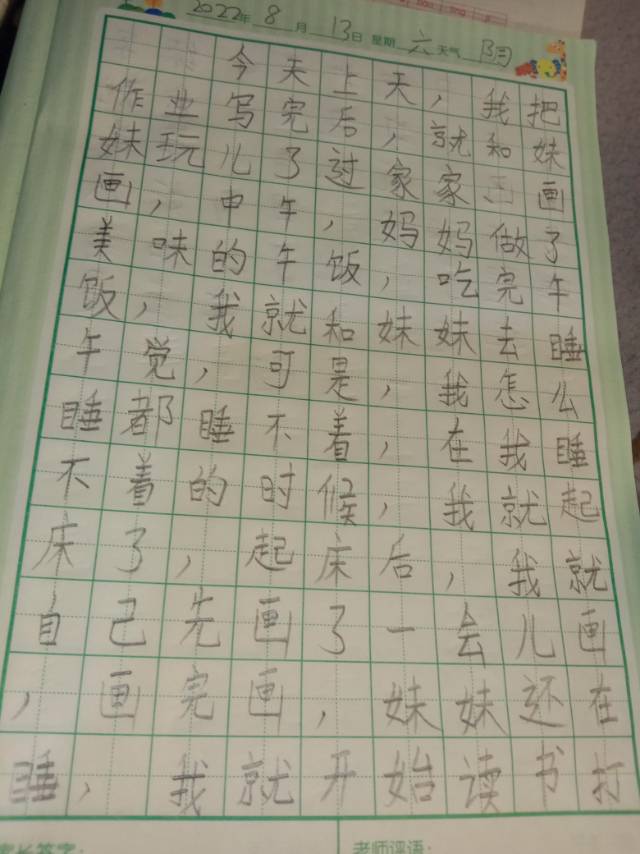 2022年8月13日 星期六 天气 阴
今天上天，我把
作业写完后，就和妹
妹玩儿了过家家画
画，中午，妈妈做了
美味的午饭，吃完午
饭，我就和妹妹去睡
午觉，可是，我怎么
睡都睡不着，在我睡
不着的时候，我就起
床了，起床后，我就
自己先画了一会儿画
，画完画，妹妹还在
睡，我就开始读书打
家长签字：
老师评语：